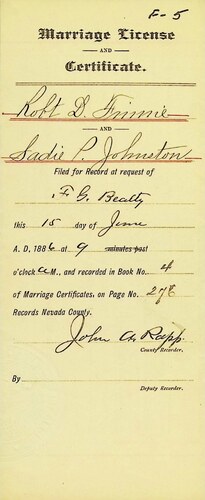 F-5
Marriage License
AND
Certificate.
Robt D. Finnie
AND
Sadie P. Johnston
Filed for Record at request of
F. G. Beatty
this 15 day of June
A. D, 1886 at 9 minutes past
o'clock A M., and recorded in Book No. 4
of Marriage Certificates, on Page No. 278
Records Nevada County.
John A. Rapp
County Recorder.
By
Deputy Recorder.